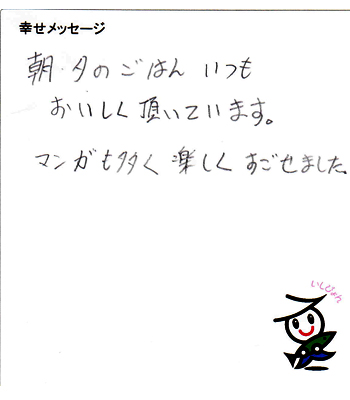 幸せメッセージ
朝・夕のごはん いつも
おいしく頂いています。
マンガも多く楽しくすごせました。
いしぴょん